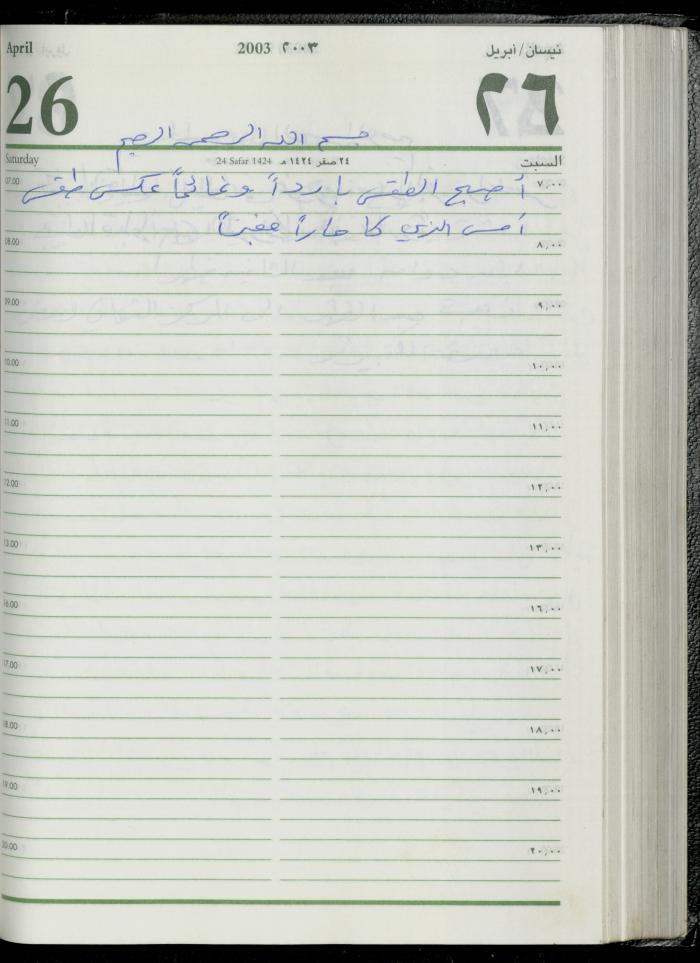 April 2003 ٢٠٠٣ نيسان/أبريل
26 ٢٦
بسم الله الرحمن الرحيم
Saturday 24 Safar 1424 ٢٤ صفر ١٤٢٤ هـ السبت
07.00 ٧,٠٠
أصبح الطقس بارداً وغائماً عكس طقس
أمس الذي كا حاراً مغبراً
08.00 ٨,٠٠
09.00 ٩,٠٠
10.00 ١٠,٠٠
11.00 ١١,٠٠
12.00 ١٢,٠٠
13.00 ١٣,٠٠
16.00 ١٦,٠٠
17.00 ١٧,٠٠
18.00 ١٨,٠٠
19.00 ١٩,٠٠
20.00 ٢٠,٠٠